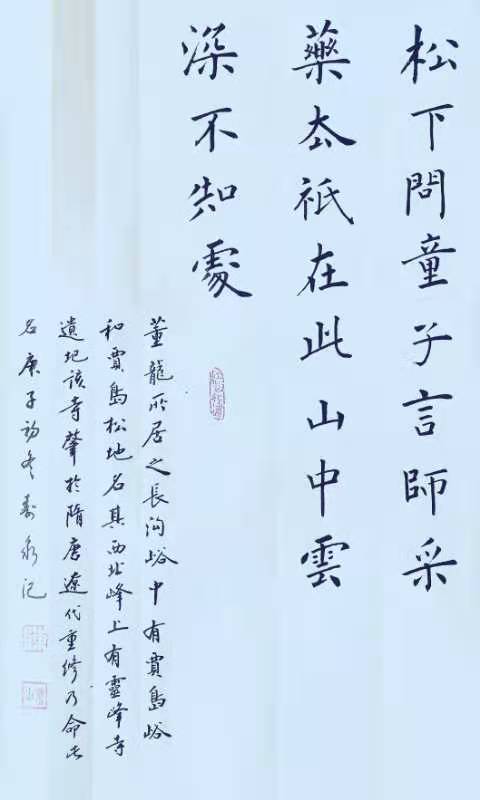 松下問童子言師采
藥去祇在此山中雲
深不知處
董龍所居之長沟峪中有賈島峪
和賈島松地名其西北峰上有靈峰寺
遺圯该寺肇於隋唐遼代重修乃命此
名庚子初冬壽永记